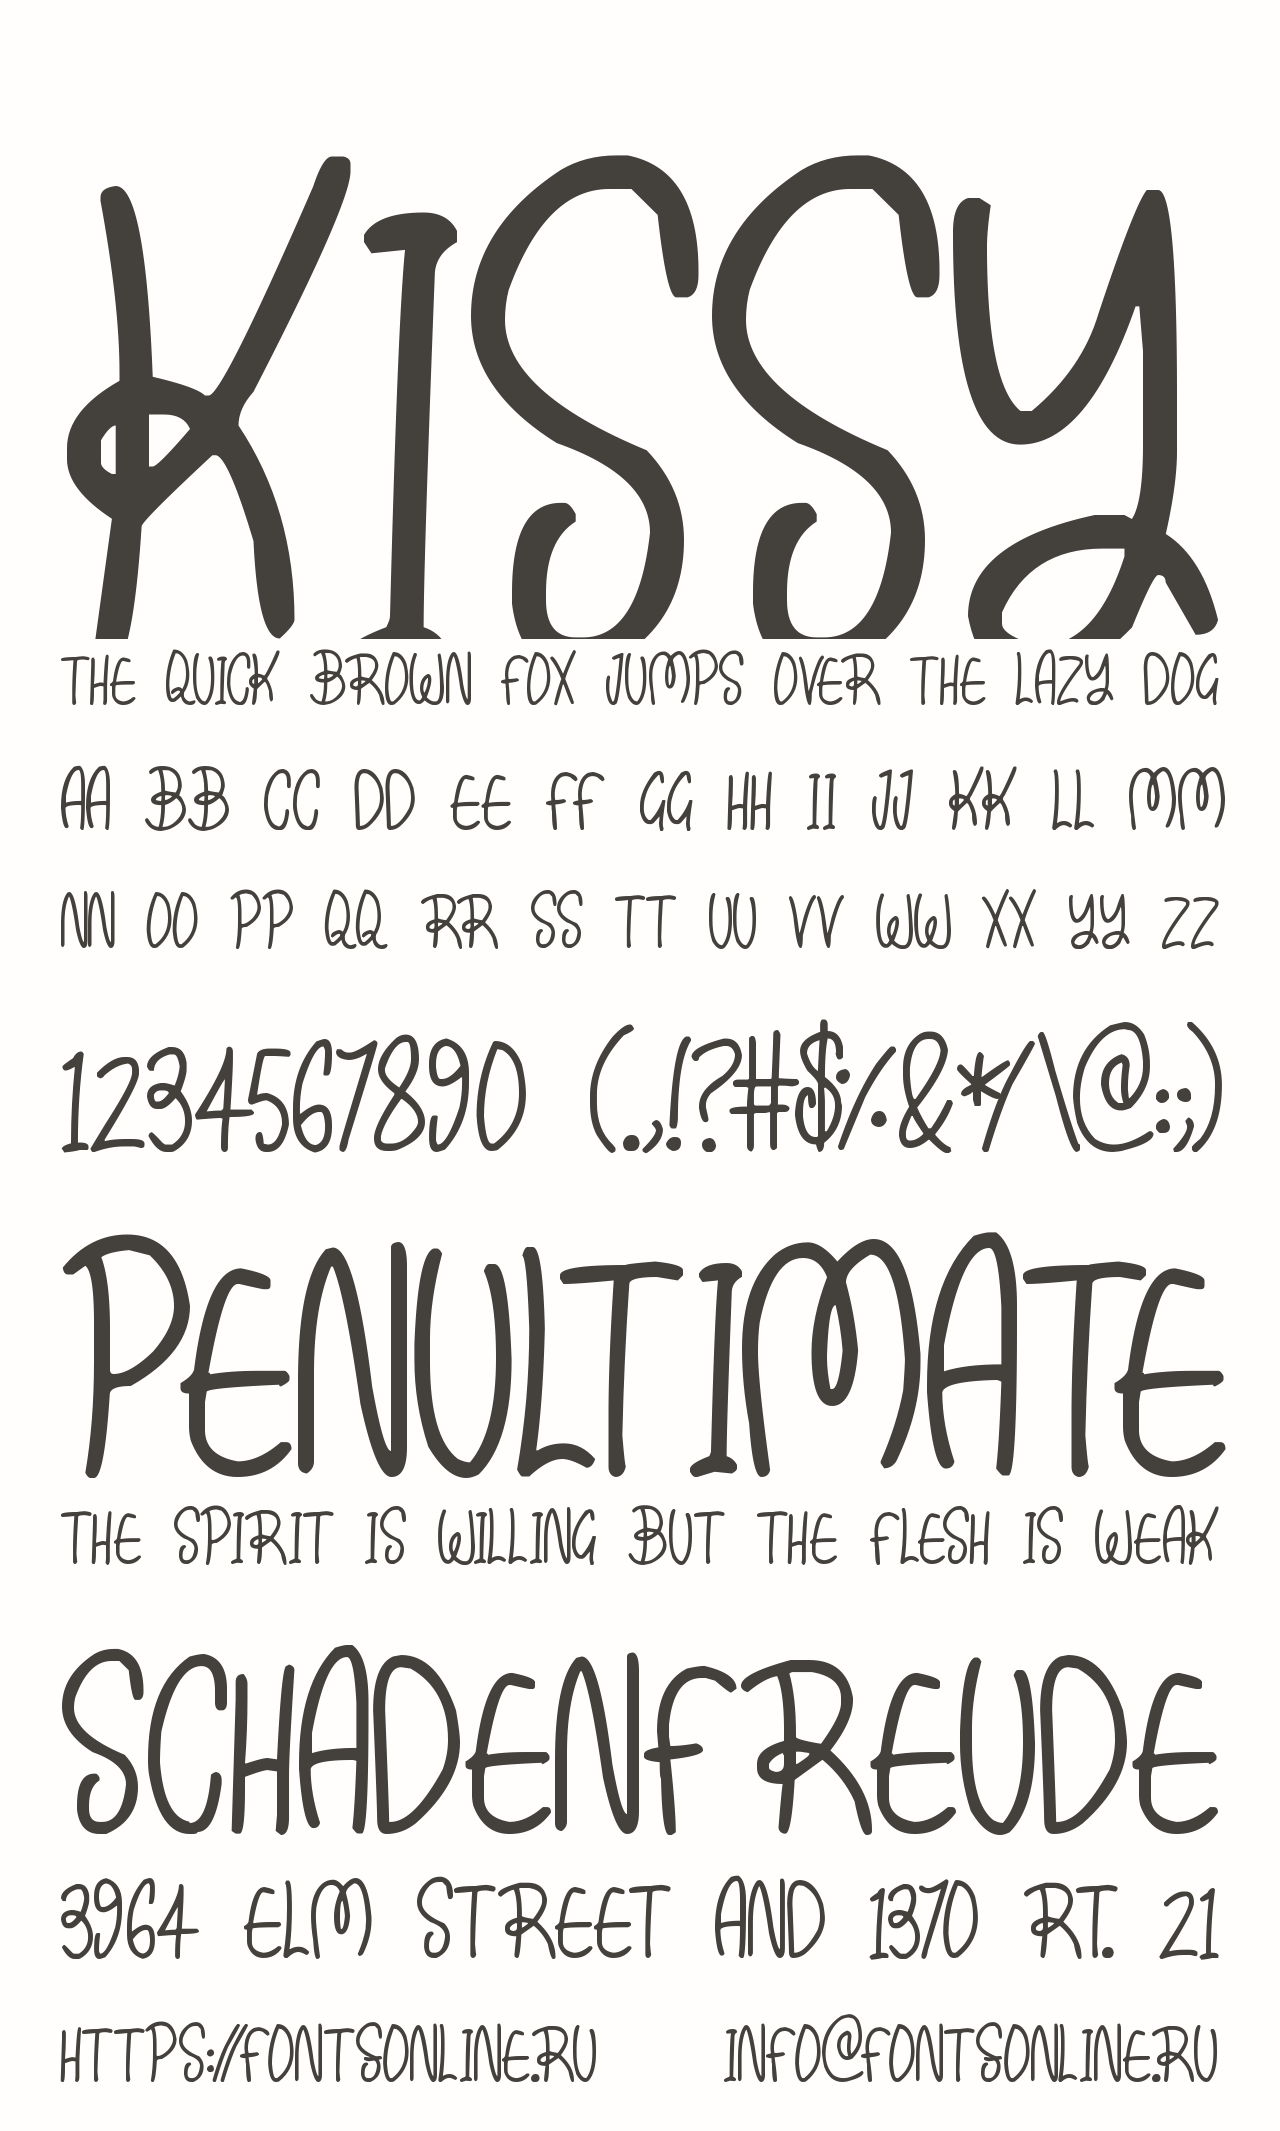 KISSY
THE QUICK BROWN FOX JUMPS OVER THE LAZY DOG
AA BB CC DD EE FF GG HH II JJ KK LL MM
NN OO PP QQ RR SS TT UU VV WW XX YY ZZ
1234567890 (.,!?#$%&*/\@:;)
PENULTIMATE
THE SPIRIT IS WILLING BUT THE FLESH IS WEAK
SCHADENFREUDE
3964 ELM STREET AND 1370 RT. 21
HTTPS://FONTSONLINE.RU INFO@FONTSONLINE.RU